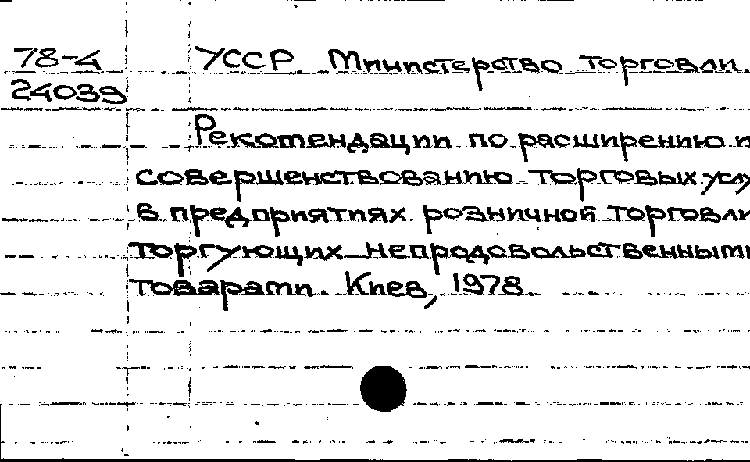 78-4
24039
УССР Министерство торговли.
Рекомендации по расширению и
совершенствованию торговых услу
в предприятиях розничной торговли
торгующих непродовольственными
товарами. Киев, 1978.